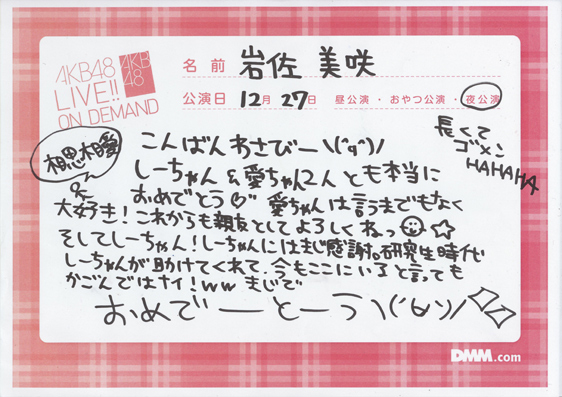 AKB48
LIVE!!
ON DEMAND
AKB
48
名前 岩佐美咲
公演日 12月 27日 昼公演・おやつ公演・夜公演
長くて
ゴメン
HAHAHA
相思相愛
こんばんわさびー\(^q^)/
しーちゃん&愛ちゃん2人とも本当に
おめでとう♡ 愛ちゃんは言うまでもなく
大好き!これからも親友としてよろしくねっ☺☆
そしてしーちゃん!しーちゃんにはまじ感謝。研究生時代
しーちゃんが助けてくれて、今もここにいると言っても
かごんではナイ!ww まじで
おめでーとーう\(^∀^)/
DMM.com